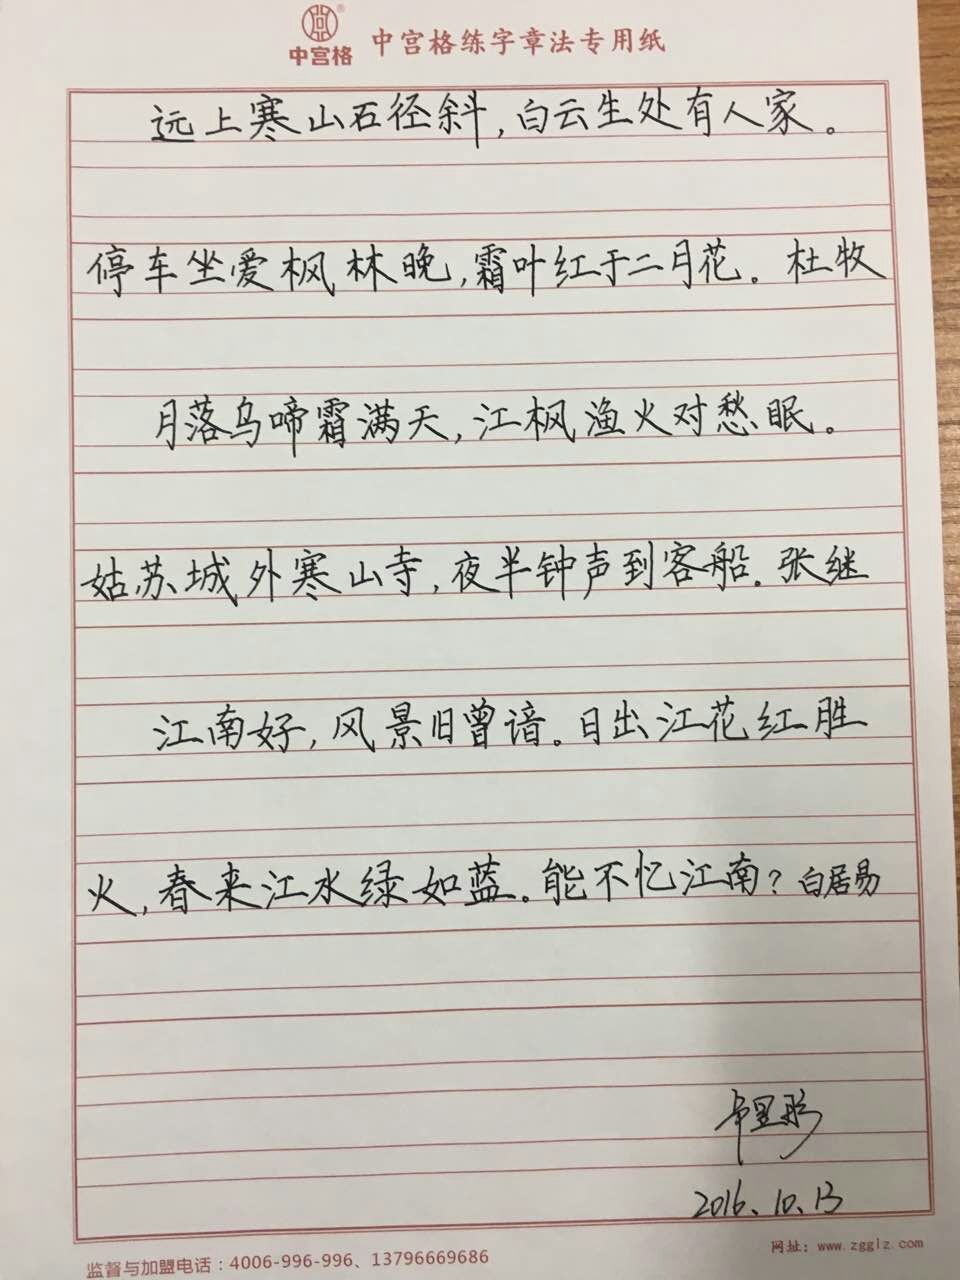 中宫格®
中宫格练字章法专用纸
远上寒山石径斜,白云生处有人家。
停车坐爱枫林晚,霜叶红于二月花。杜牧
月落乌啼霜满天,江枫渔火对愁眠。
姑苏城外寒山寺,夜半钟声到客船。张继
江南好,风景旧曾谙。日出江花红胜
火,春来江水绿如蓝。能不忆江南?白居易
2016、10、13
监督与加盟电话:4006-996-996、13796669686
网址:www.zgglz.com